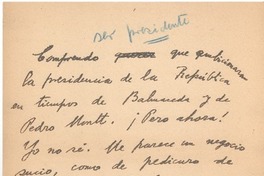 ser presidente
Comprendo que ambicionaran
la presidencia de la República
en tiempos de Balmaceda y de
Pedro Montt. ¡Pero ahora!
Yo no sé. Me parece un negocio
sucio, como de pedicuro de